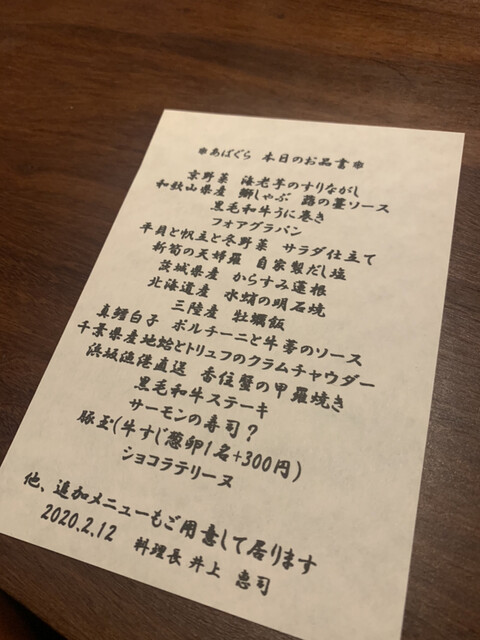 ❊あばぐら 本日のお品書❊
京野菜 海老芋のすりながし
和歌山県産 鰤しゃぶ 蕗の薹ソース
黒毛和牛うに巻き
フォアグラパン
平貝と帆立と冬野菜 サラダ仕立て
新筍の天婦羅 自家製だし塩
茨城県産 からすみ蓮根
北海道産 水蛸の明石焼
三陸産 牡蠣飯
真鱈白子 ポルチーニと牛蒡のソース
千葉県産地蛤とトリュフのクラムチャウダー
浜坂漁港直送 香住蟹の甲羅焼き
黒毛和牛ステーキ
サーモンの寿司?
豚玉(牛すじ葱卵1名+300円)
ショコラテリーヌ
他、追加メニューもご用意して居ります
2020.2.12 料理長 井上 恵司